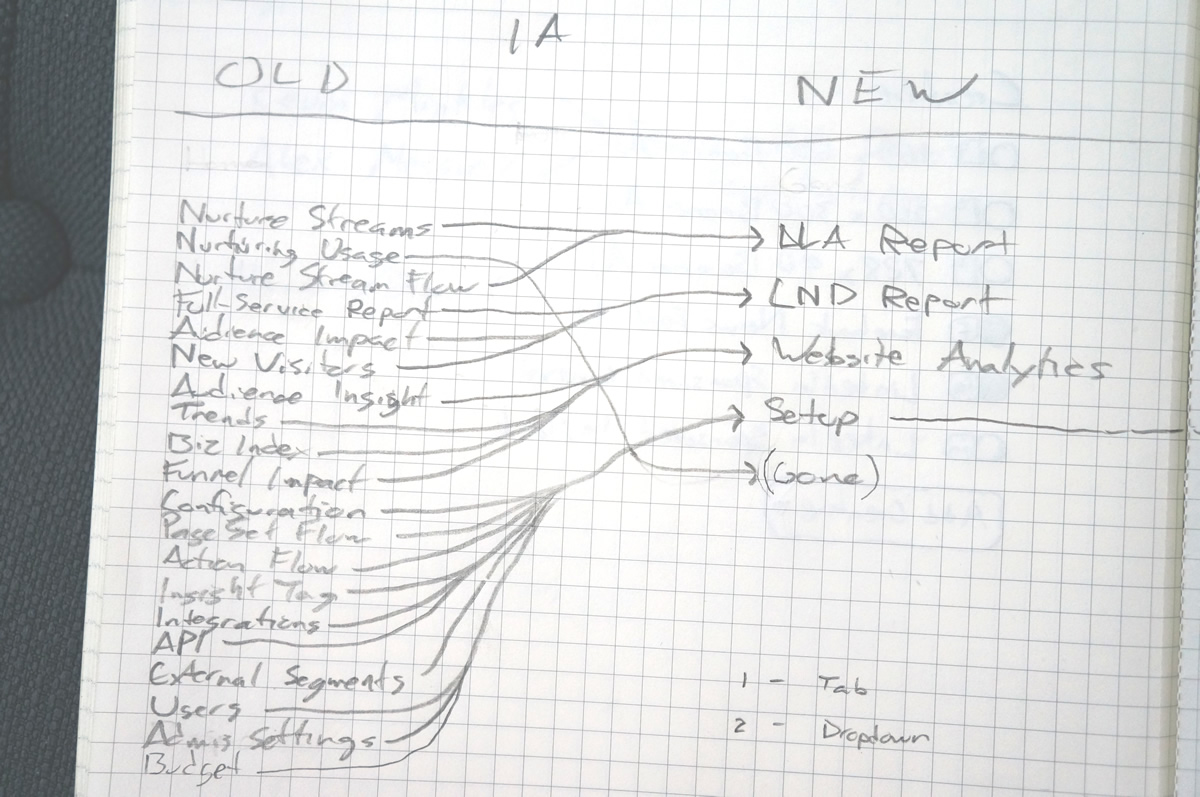 IA
OLD
NEW
Nurture Streams
Nurturing Usage
Nurture Stream Flow
Full-Service Report
Audience Impact
New Visitors
Audience Insight
Trends
Biz Index
Funnel Impact
Configuration
Page Set Flow
Action Flow
Insight Tag
Integrations
API
External Segments
Users
Admin Settings
Budget
LLA Report
LND Report
Website Analytics
Setup
(Gone)
1 - Tab
2 - Dropdown